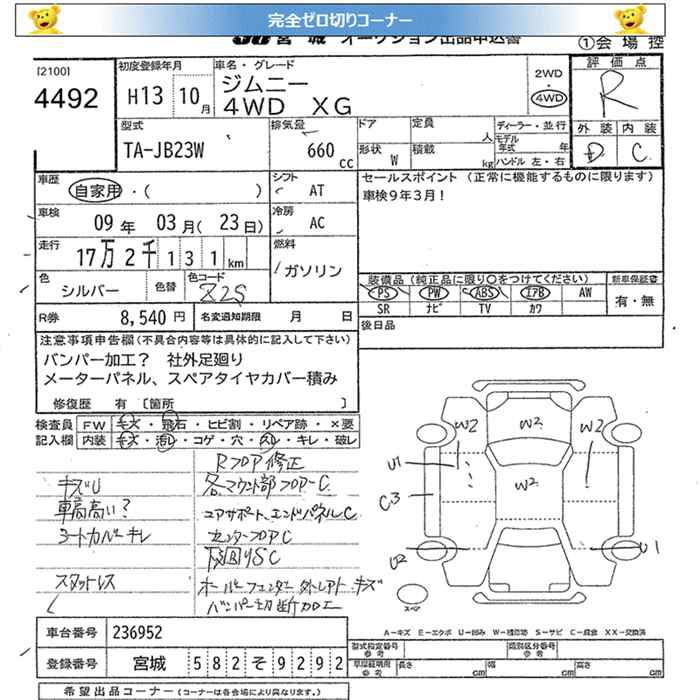 完全ゼロ切りコーナー
JU 宮城 オークション出品申込書
①会場控
[2100]
4492
初度登録年月
H13 10月
車名・グレード
ジムニー
4WD XG
2WD
・
4WD
評価点
R
外装 内装
D C
型式
TA-JB23W
排気量
660 cc
ドア
定員 人
形状 W
積載 kg
ディーラー・並行
モデル年式 年
ハンドル 左・右
車歴
自家用・( )
シフト
AT
セールスポイント (正常に機能するものに限ります)
車検9年3月!
車検
09年 03月(23日)
冷房
AC
走行
17万2千131km
燃料
ガソリン
色
シルバー
色替
色コード
Z2S
装備品(純正品に限り〇をつけてください)
PS PW ABS エアB AW
SR ナビ TV カワ
新車保証書
有・無
R券 8,540円
名変通知期限 月 日
後日品
注意事項申告欄(不具合内容等は具体的に記入して下さい)
バンパー加工? 社外足廻り
メーターパネル、スペアタイヤカバー積み
修復歴 有 〔箇所 〕
検査員記入欄
FW キズ・飛石・ヒビ割・リペア跡・×要
内装 キズ・汚レ・コゲ・穴・スレ・キレ・破レ
Rフロア修正
キズU
各マウント部フロアーC
車高高い?
コアサポート、エンドパネルC
シートカバーキレ
センターフロアC
下廻りSC
スタットレス
オーバーフェンダー外レアト、キズ
バンパー切断加工
W2 W2 W2
U1
W2
C3
U2
U1
スペア
A−キズ E−エクボ U−凹み W−補修跡 S−サビ C−腐食 XX−交換済
車台番号 236952
登録番号 宮城 582そ9292
型式指定番号 参考
類別区分番号 参考
車庫証明用 参考
長さ cm 幅 cm 高さ cm
希望出品コーナー(コーナーは各会場により異なります。)